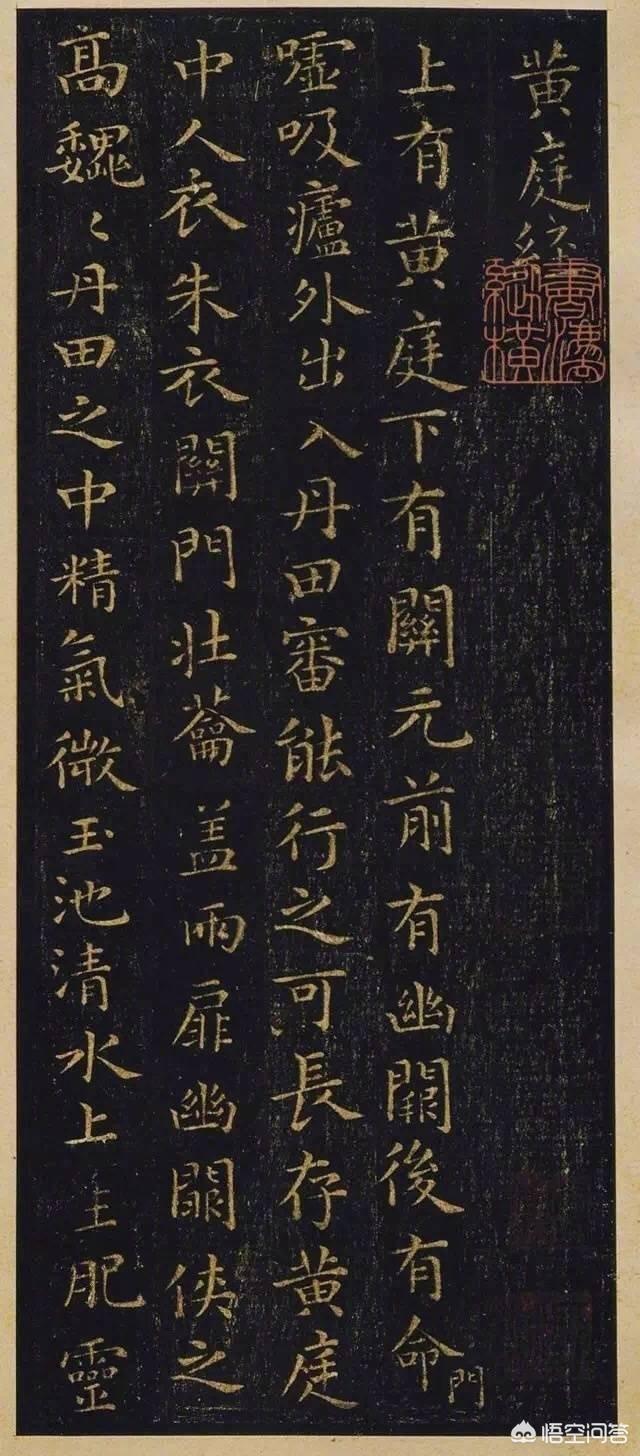 黄庭經
上有黄庭下有關元前有幽闕後有命門
嘘吸廬外出入丹田審能行之可長存黄庭
中人衣朱衣關門壮蘥盖兩扉幽闕侠之
高魏〻丹田之中精氣微玉池清水上生肥靈
悟空问答